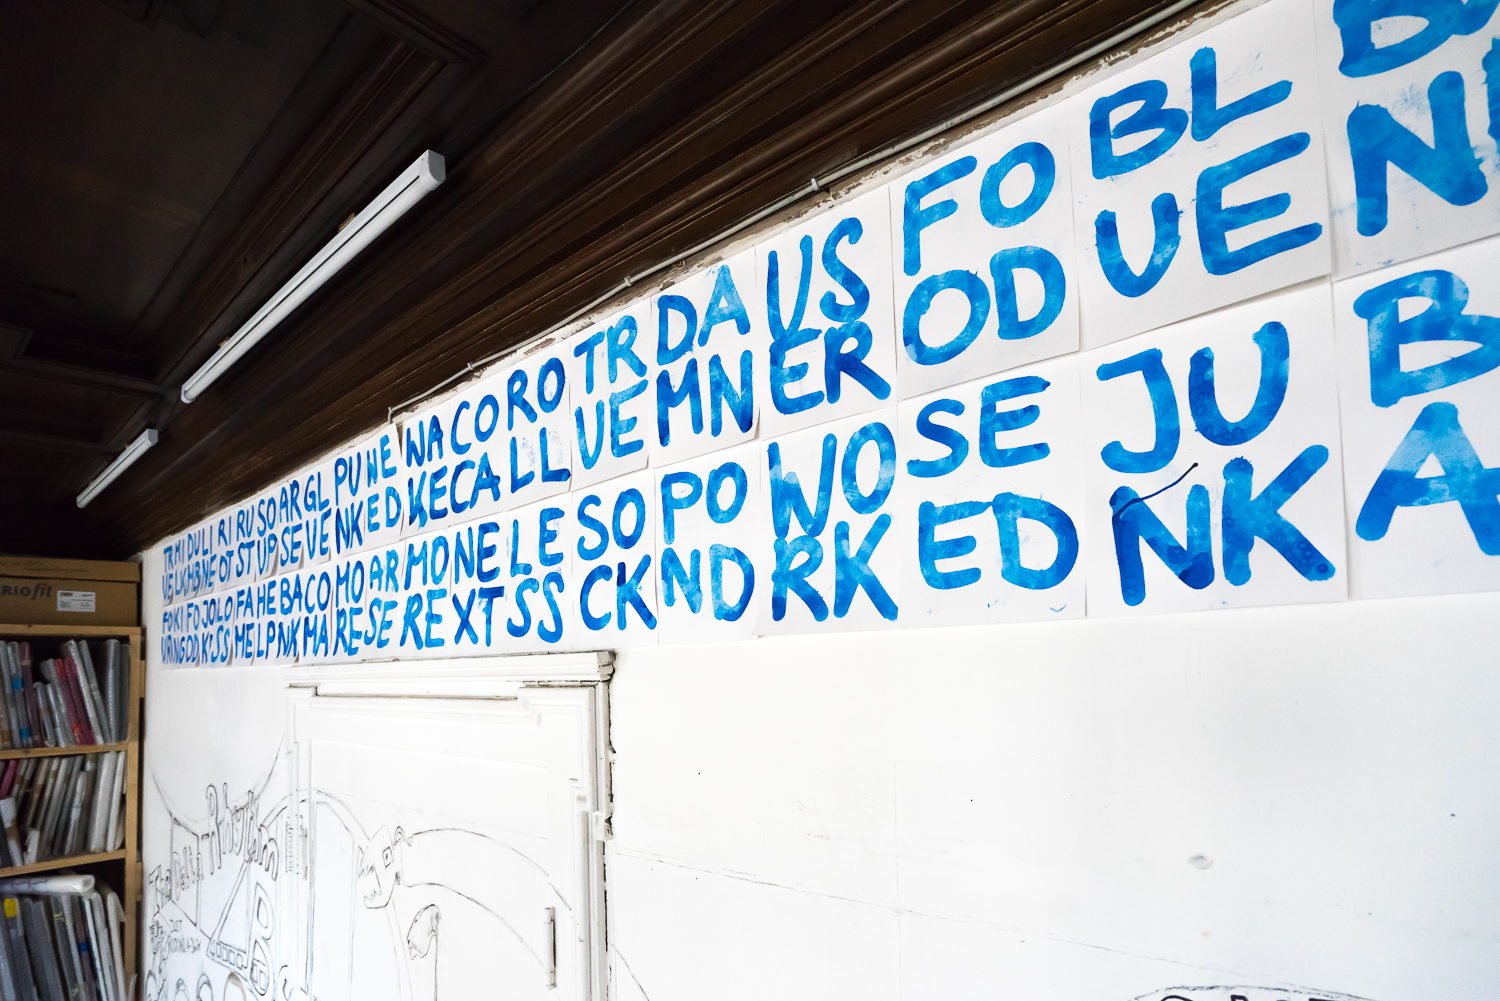 TR MI DU LI RI RU SO AR GL PU NE WA CO RO TR DA US FO BL
UE LK MB NE OT ST UP SE VE NK ED KE CA LL UE MN ER OD UE N
FO KI FO JO LO FA HE BA CO MO AR MO NE LE SO PO WO SE JU B
UR NG OD KE SS ME LP NK MA RE SE RE XT SS CK ND RK ED NK A
RIOfit
The Delta Rhythm